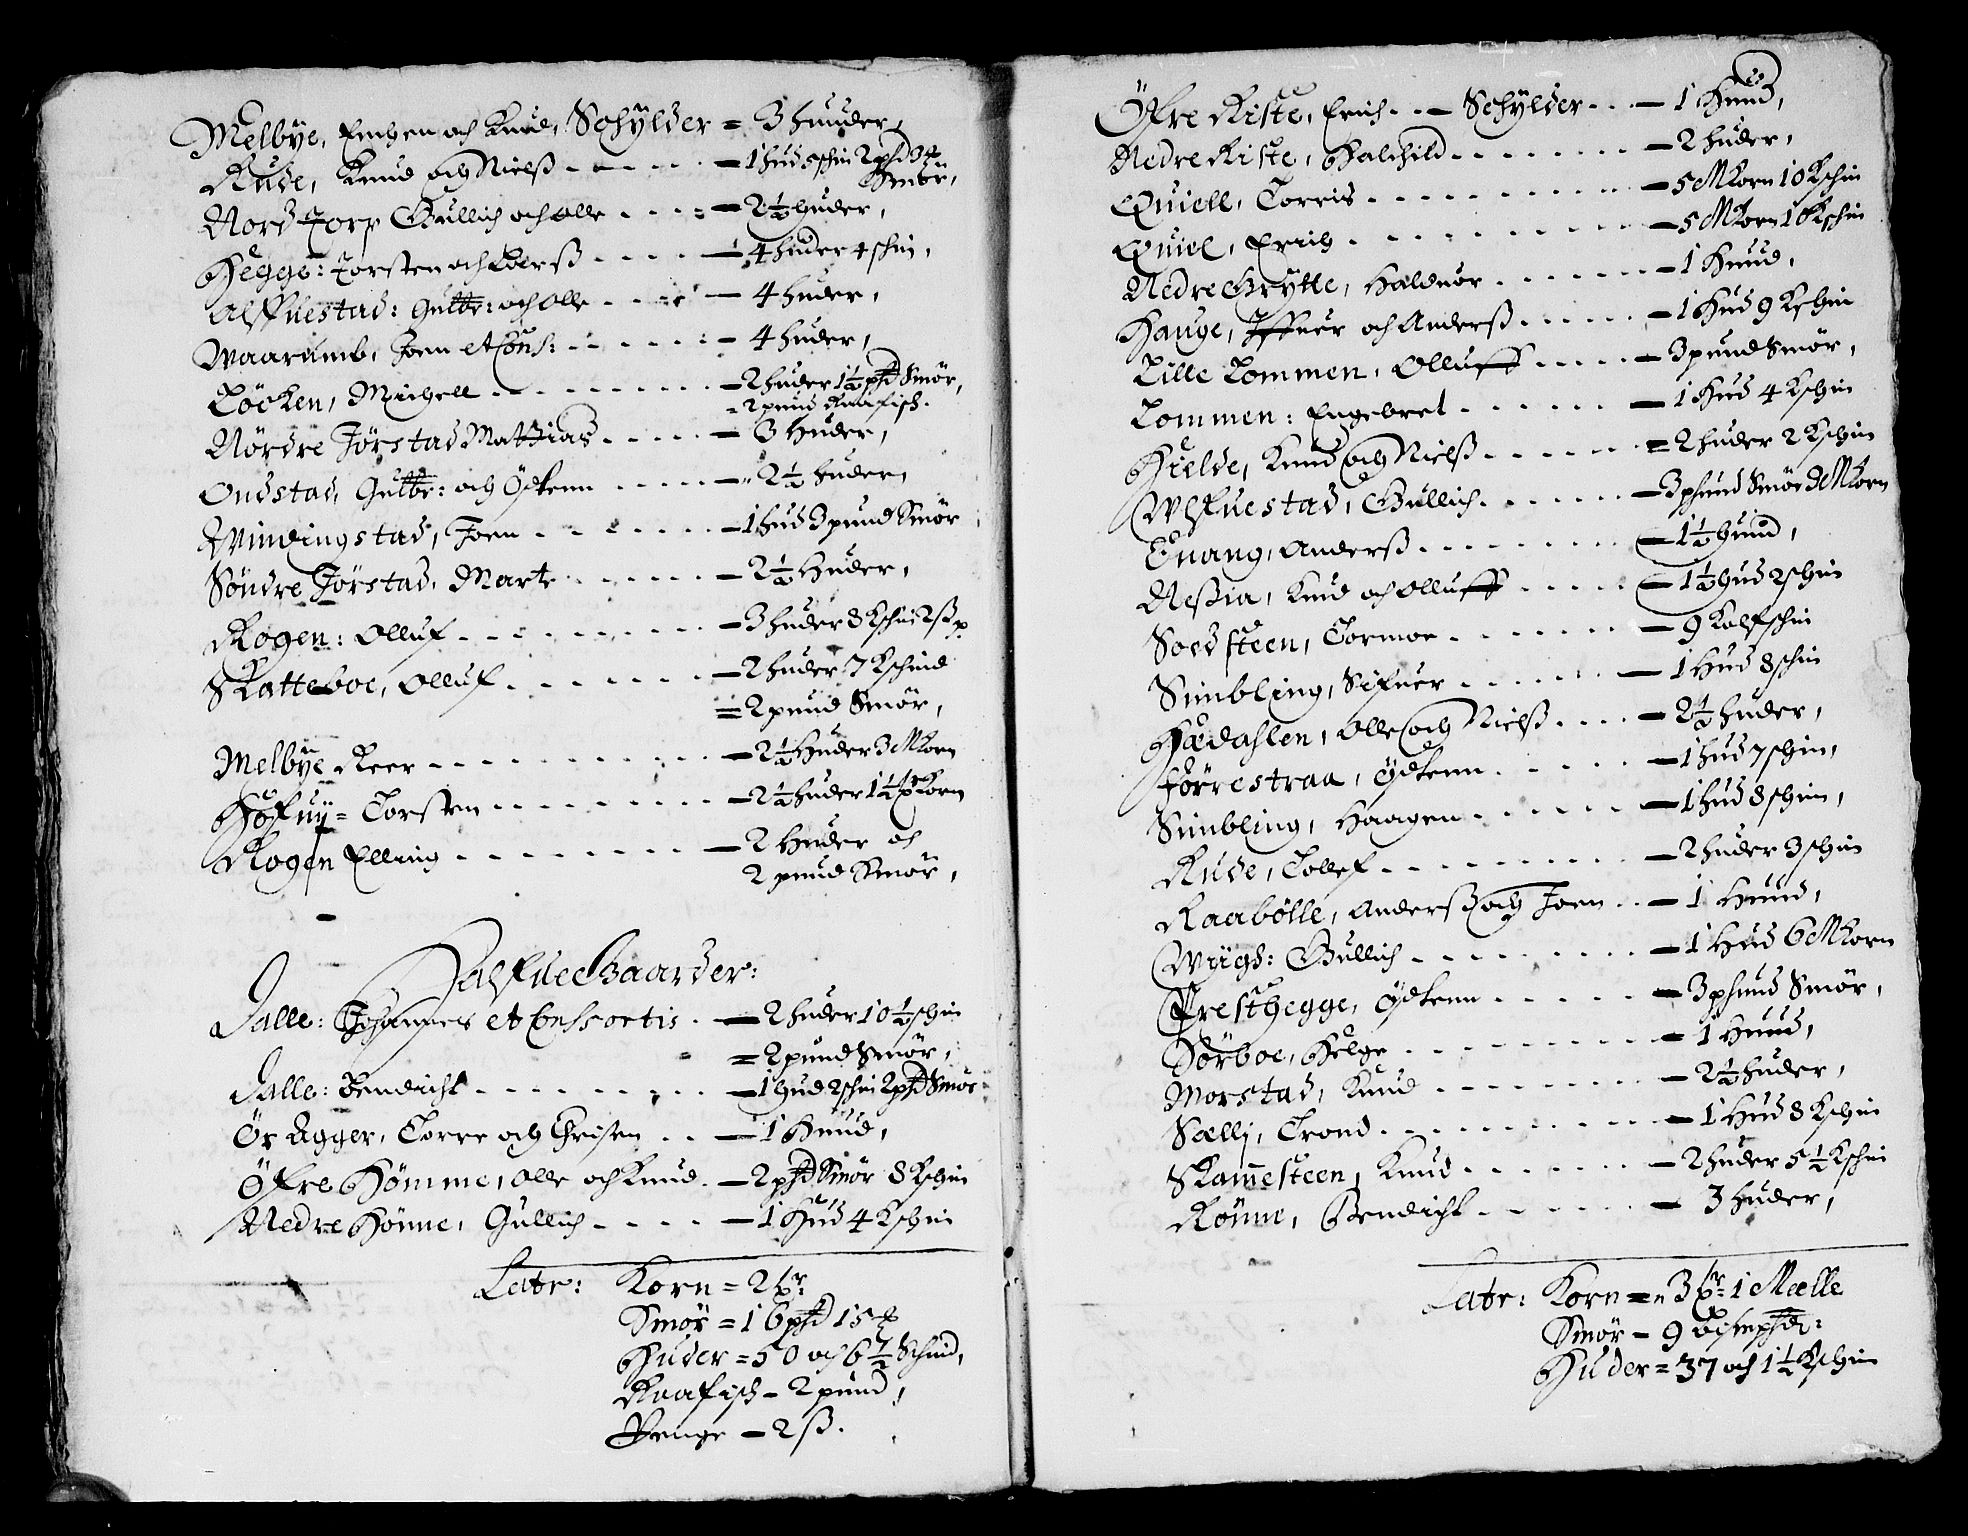 Melbye, och Knud, Schÿlder = 3 huuder,
Rude, Knud och Nielß - - - - - 1 hud 5 schin 2 pfd 3 #
Smör,
Nord Torp Gullich och Olle . . . . - 2½ huder,
Hegge: Torsten och - - - - - 4 huder 4 schin,
Alffuestad: Gutte: och Olle - - - - 4 huder,
Waarumb, Joen et Cons: - - - - - 4 huder,
Löcken, Michell - - - - - - - 2 huder 1½ pfd Smör,
= 2 pund Raafisch.
Nördre Jörstad Mattias - - - - - 3 huder,
Ondstad, Gutte: och Ödtenn - - - - - 2½ huder,
Windingstad, Joen - - - - - - 1 hud 3 pund Smör
Söndre Jörstad, Marte - - - - - 2½ Huder,
Rogen: Olluf - - - - - - - - 3 huder 8 Kschin 2 ß p
Skatteboe, Olluf - - - - - - - 2 huder 7 Kschind
= 2 pund Smör,
Melbÿe Reer - - - - - - - - - 2½ Huder 3 M Korn
Höfuÿ = Torsten - - - - - - - - 2½ huder 1½ tr Korn
Rogen Elling - - - - - - - - 2 Huder och
2 pund Smör,
Halfuee Gaarder:
Dalle: Johannes et Consortis . - 2 huder 10½ schin
= 2 pund Smör,
Dalle: Bendicht - - - - - - - - 1 hud 2 schin 2 pfd Smör
Ör Agger, Torre och - - - 1 Huud,
Öfre Hömme, Olle och Knud - 2 pfd Smör 8 Kschin
Nedre Hönne, Gullich - - - - - 1 Hud 4 Kschin
Latr: Korn = 2 tr:
Smör = 16 pfd 15 #
Huder = 50 och 6½ Schind,
Raafisch - 2 pund,
Penge - 2 ß.
Öfre Riste, Erich . . - Schÿlder . . - 1 Huud,
Nedre Riste, Halchild - - - - - - - 2 huder,
Quiell, Torris - - - - - - - - - 5 M Korn 10 Kschin
Quiel, Erich - - - - - - - - - 5 M Korn 10 Kschin
Nedre Grÿtte, Halduor - - - - - - 1 Huud,
Hauge, Iffuer och Anderß - - - - - 1 Hud 9 Kschin
Lille Lommen, Olluff - - - - - 3 pund Smör,
Lommen: Engebret - - - - - - - 1 Hud 4 Kschin
Hielde, Knud och Nielß - - - - - = 2 huder 2 Kschin
Wlfuestad, Gullich - - - - - - 3 phund Smör 3 M Korn
Quang, Anderß - - - - - - - - 1½ huud,
Neßia, Knud och Olluff - - - - - 1½ hud 2 schin
Soedsteen, Tormoe - - - - - - - 9 Kalfschin
Simbling, Sifuer - - - - - - - 1 Hud 8 schin
Hædahlen, Olle och Nielß - - - - 2½ huder,
Förrestraa, Ödtenn - - - - - - 1 hud 7 schin,
Simbling, Haagen - - - - - - - 1 hud 8 schin,
Rude, Tollef - - - - - - - - - 2 huder 3 schin
Raabölle, Anderß och Joen . . - 1 Huud,
Wÿgd: Gullich - - - - - - - - 1 Hud 6 M Korn
Presthegge, Ödtenn - - - - - - 3 phund Smör,
Sörboe, Helge - - - - - - - - 1 Huud,
Morstad, Knud - - - - - - - - 2½ huder,
Sælli, Trond - - - - - - - - - 1 Hud 8 Kschin
Skamesteen, Knud - - - - - - - 2 huder 5½ Kschin
Rönne, Bendicht - - - - - - - 3 huder,
Latr: Korn = 3 tr 1 Mælle
Smör - 9 Bismpfd:
Huder = 37 och 1½ Kschin